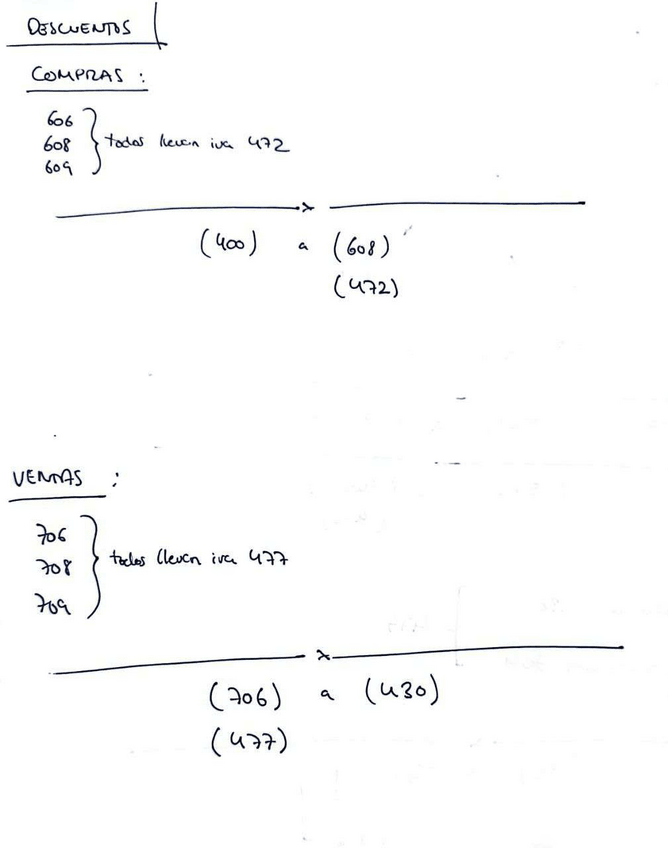 DESCUENTOS
COMPRAS :
606
608 } todos llevan iva 472
609
x
(400) a (608)
(472)
VENTAS :
706
708 } todos llevan iva 477
709
x
(706) a (430)
(477)